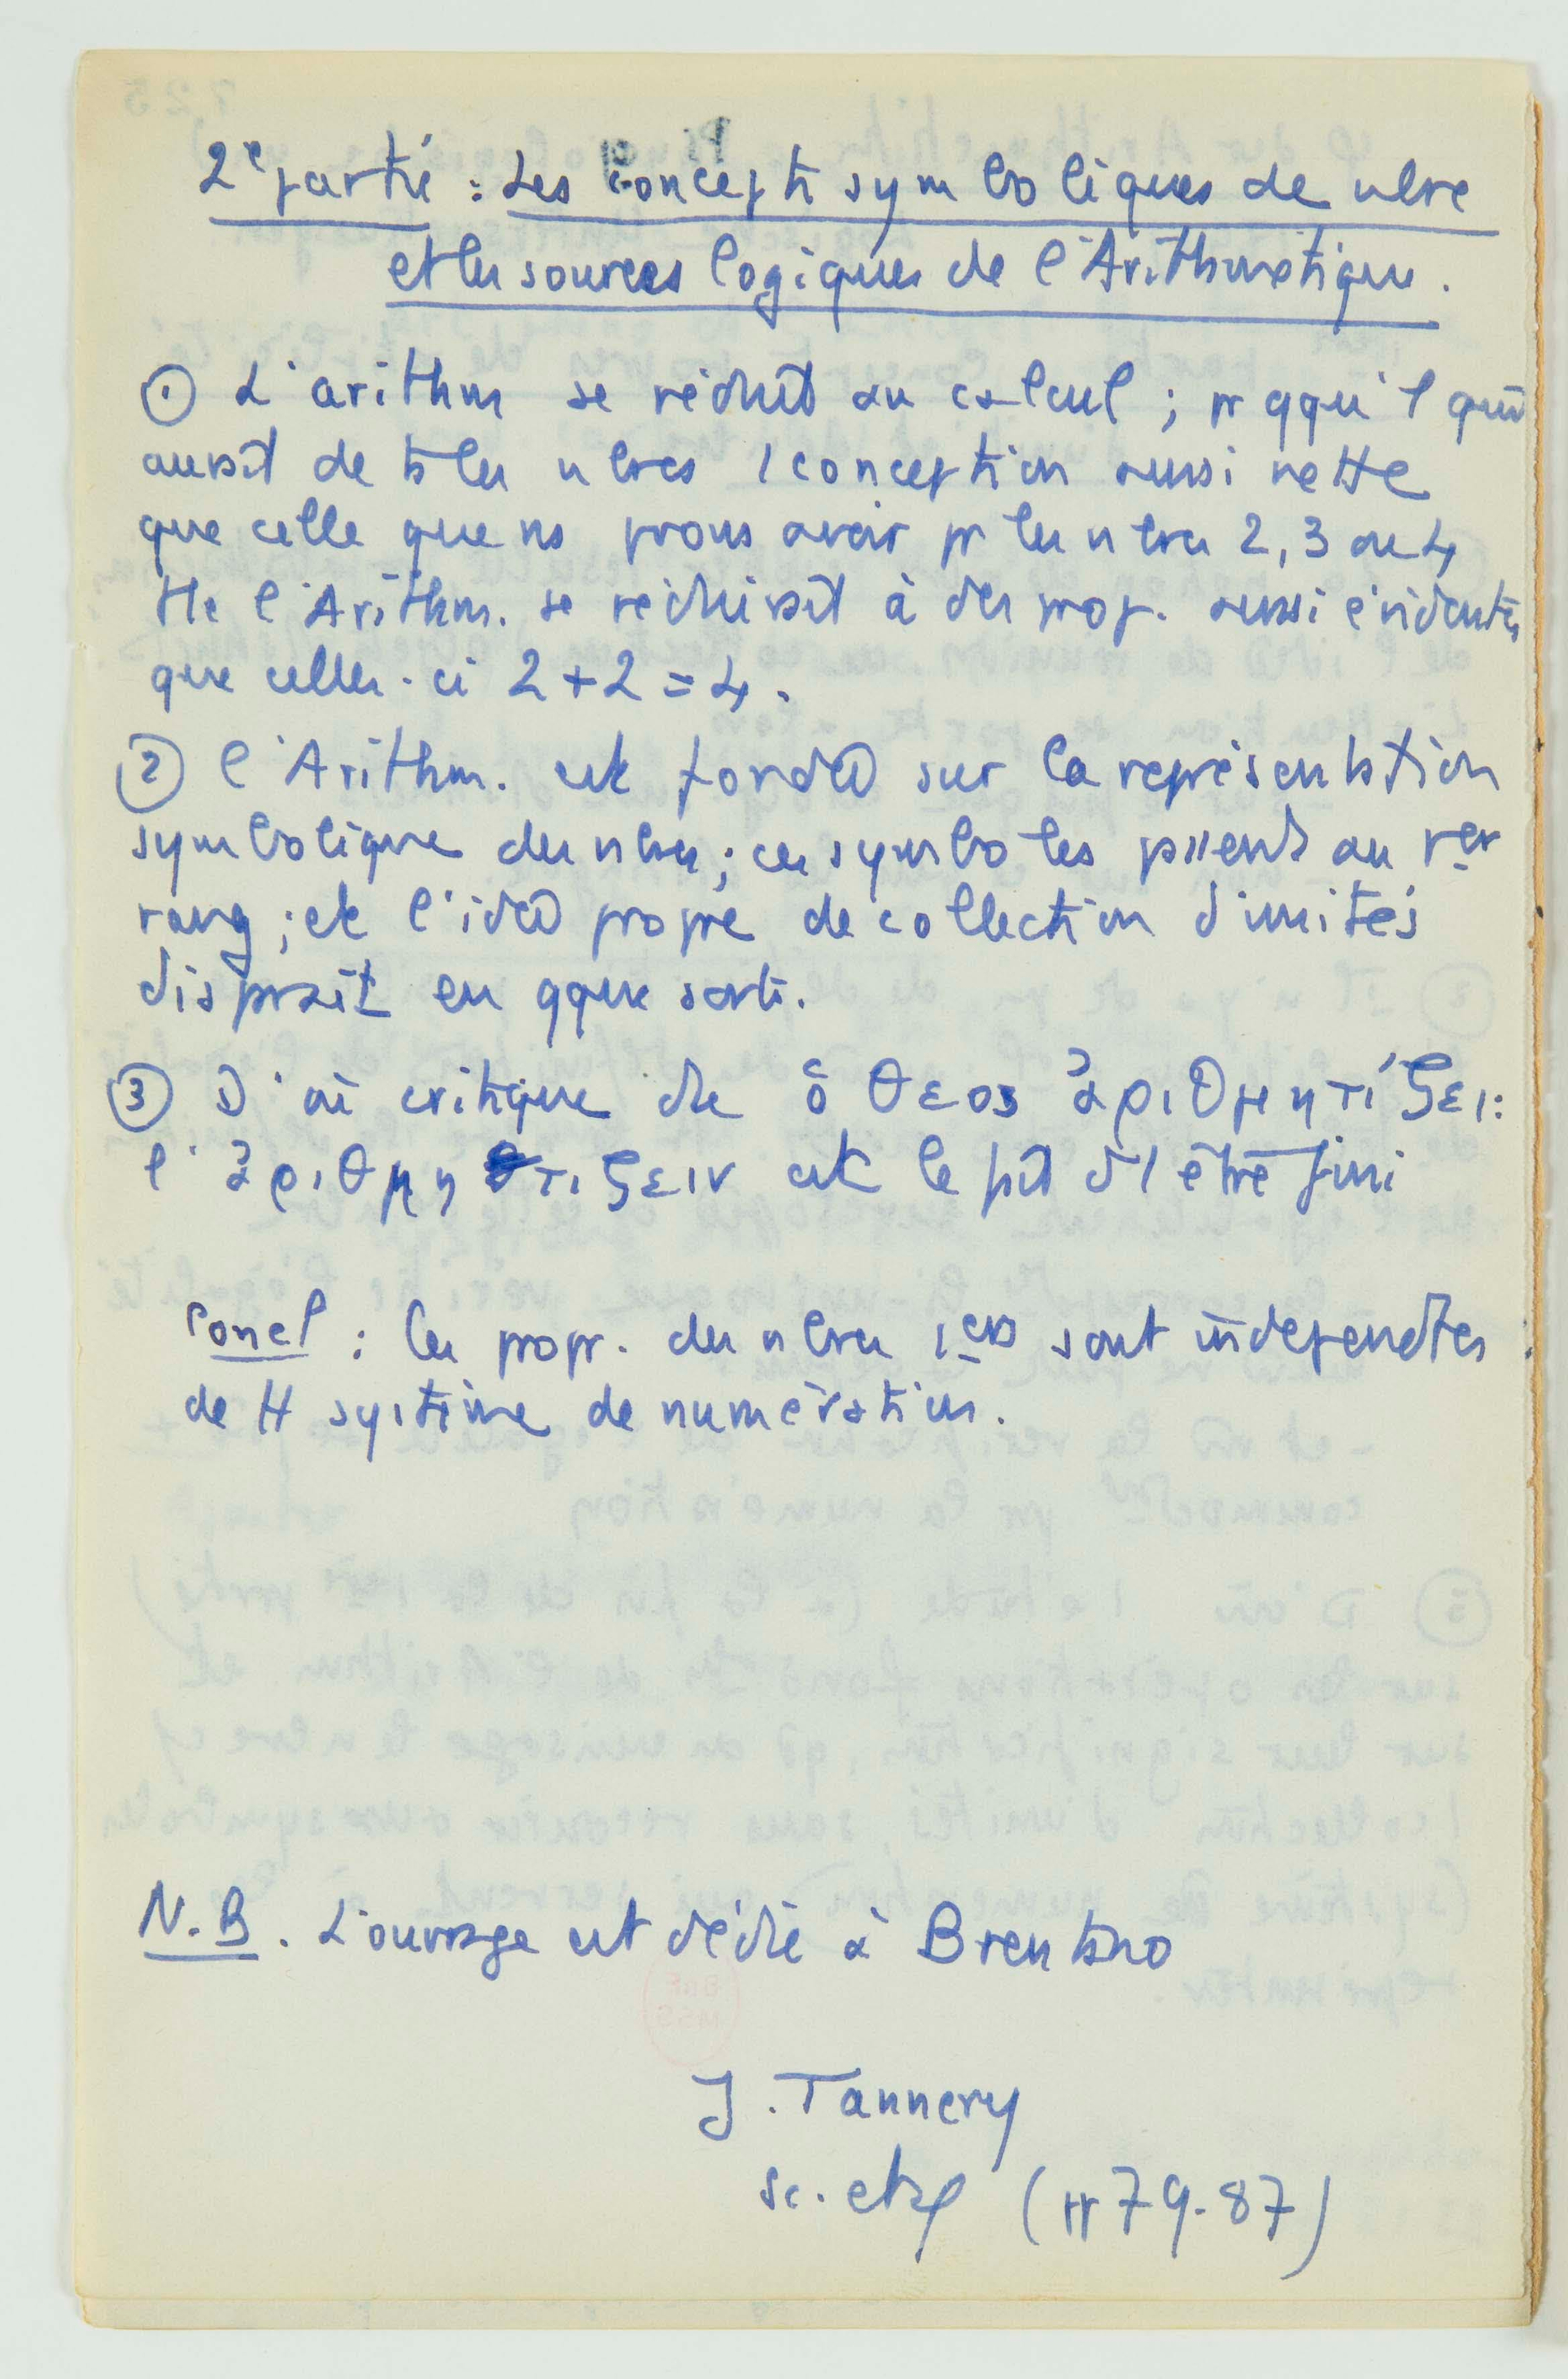 2e partie : Les concepts symboliques de nbre
et les sources logiques de l'Arithmétique.
① L'arithm se réduit au calcul ; pr qqu'1 qui
aurait de ts les nbres 1 conception aussi nette
que celle que ns pvons avoir pr les nbres 2, 3 ou 4
tte l'Arithm. se réduirait à des prop. aussi évidentes
que celles-ci 2+2=4.
② l'Arithm. est fondée sur la représentation
symbolique des nbres ; ces symboles passent au 1er
rang ; et l'idée propre de collection d'unités
disparaît en qque sorte.
③ D'où critique de ὁ θεος ἀριθμητίζει :
l'ἀριθμητιζειν est le fait d'1 être fini
Concl : les propr. des nbres 1ers sont indépendtes
de tt système de numération.
N.B. L'ouvrage est dédié à Brentano
J. Tannery
Sc. et φ (pp 79-87)